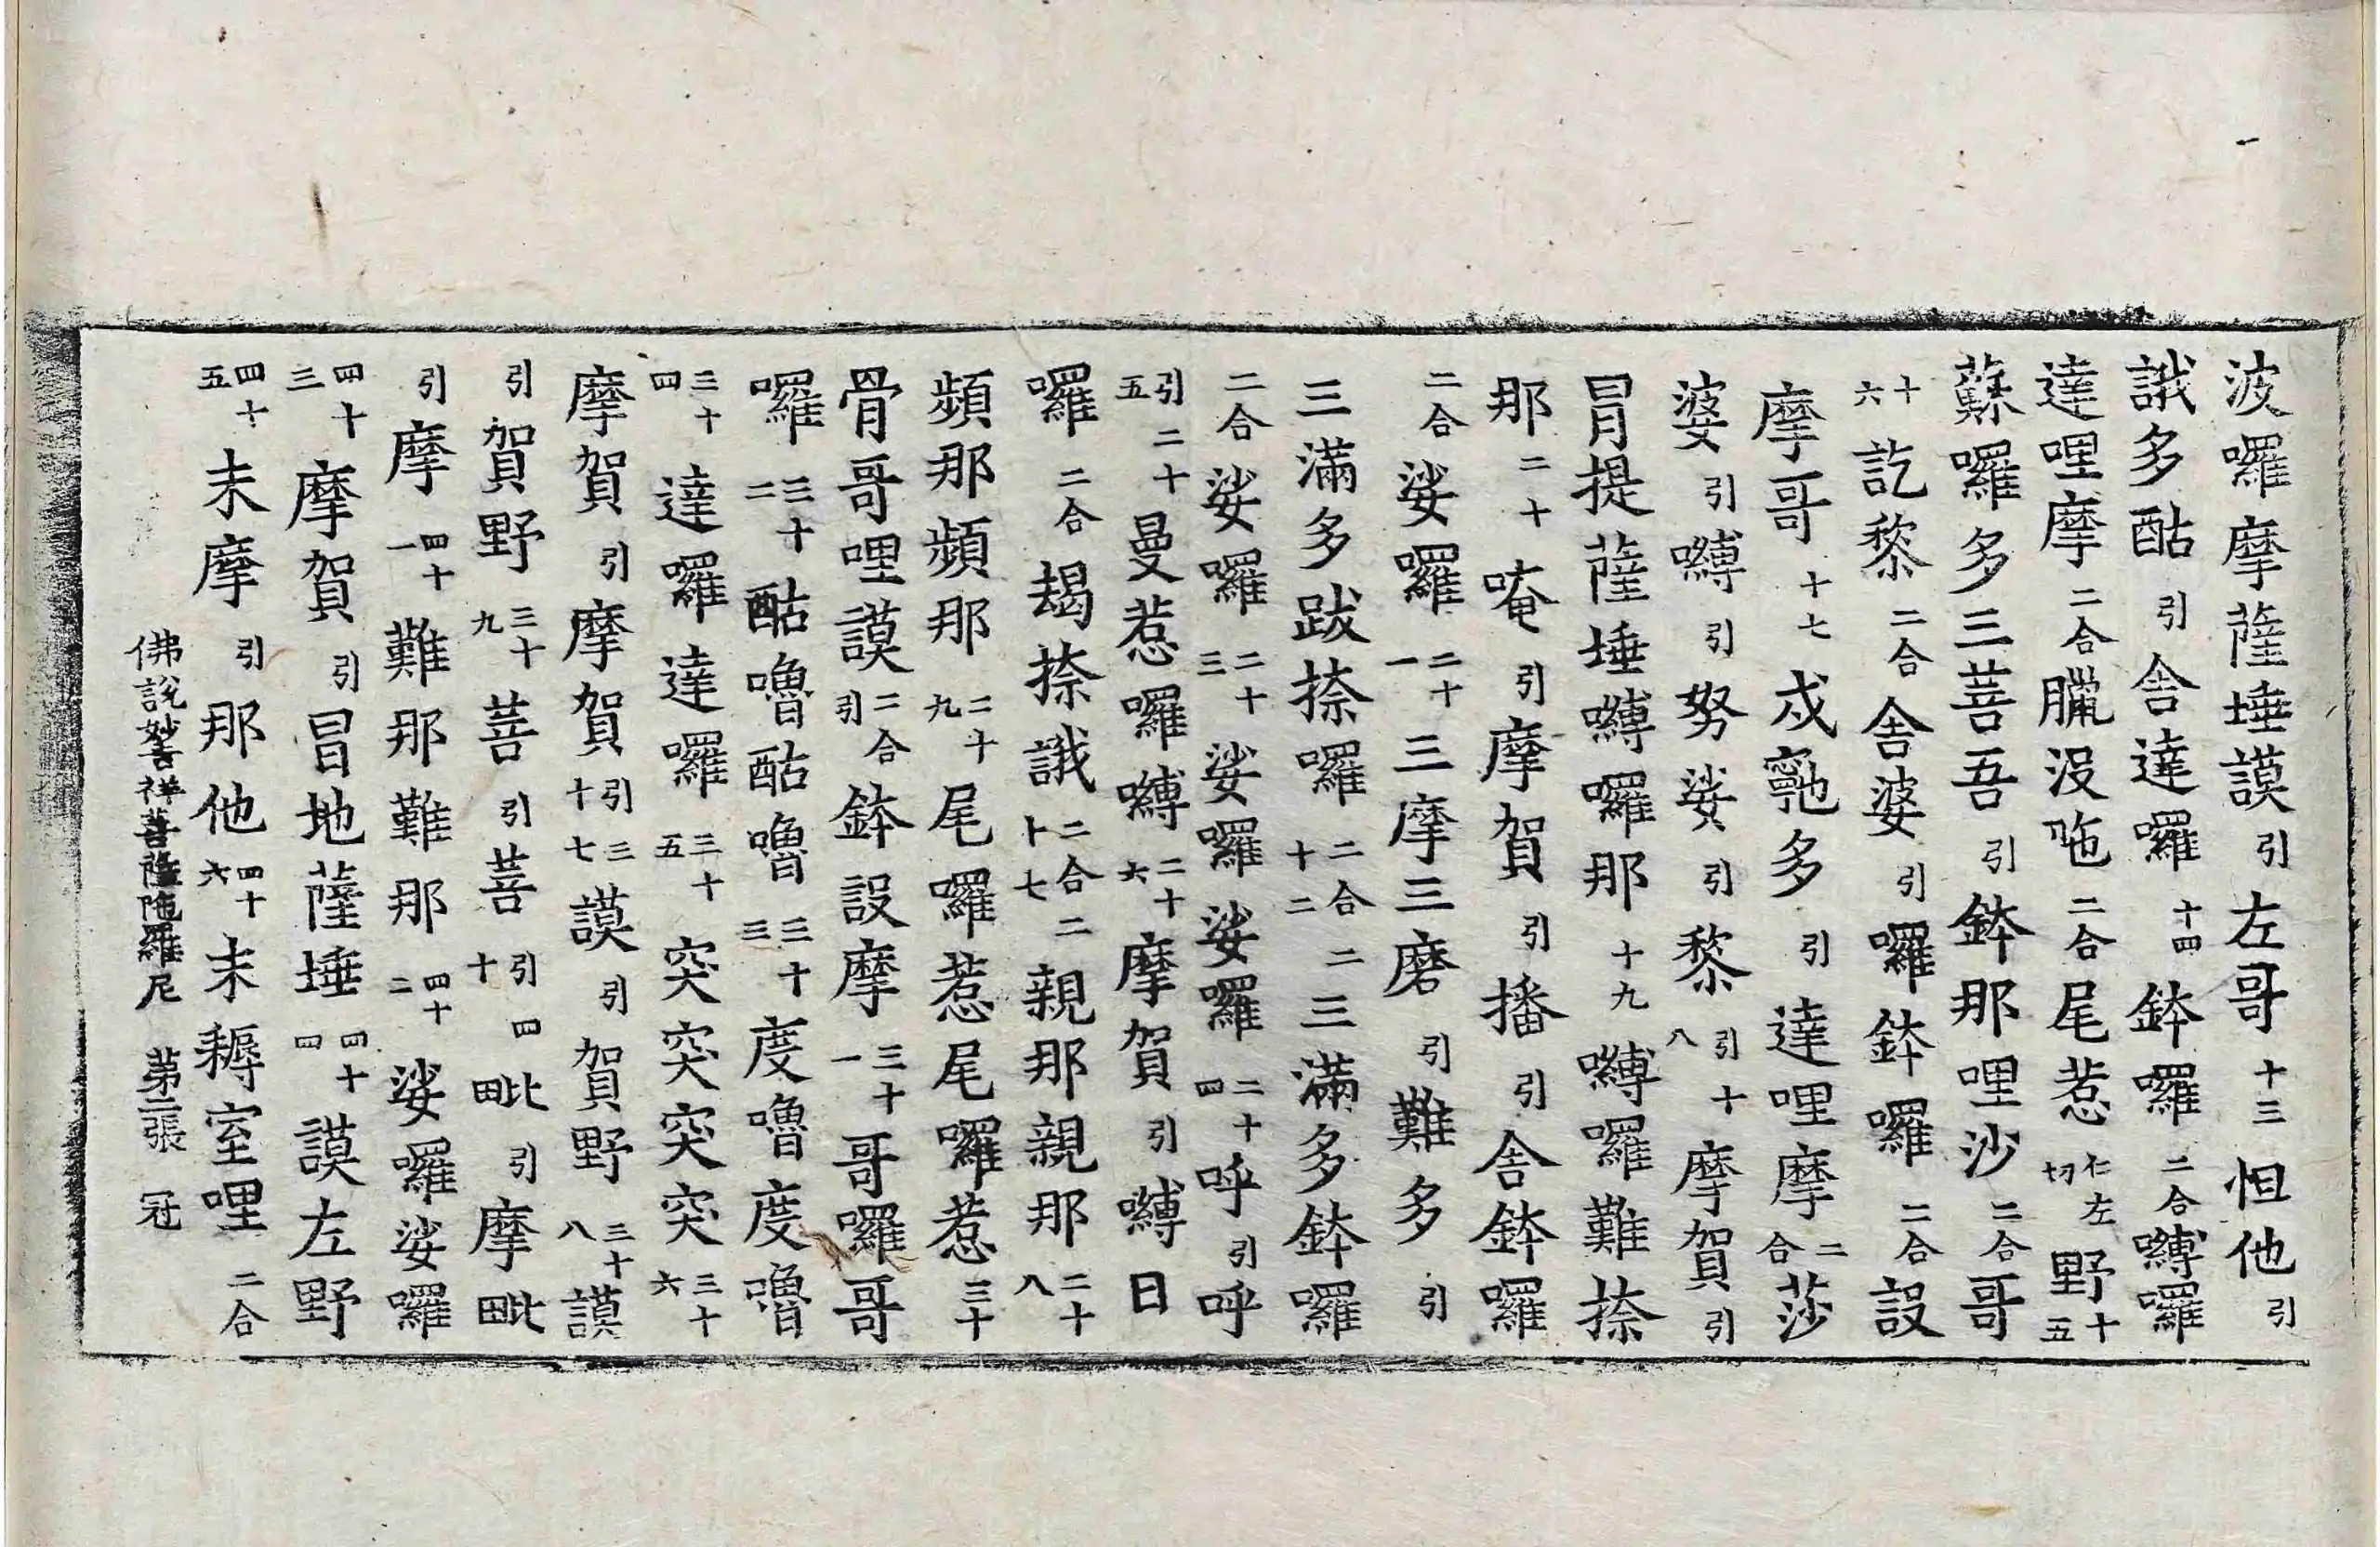 波囉摩薩埵謨引左哥十三怛他引
誐多酤引舍達囉十四鉢囉二合嚩囉
達哩摩二合臘沒𠵐二合尾惹仁左切野十五
蘇囉多三菩吾引鉢那哩沙二合哥
十六訖棃二合舍婆引囉鉢囉二合設
摩哥十七戍𩕳多引達哩摩二合莎
婆引嚩引努娑引棃引十八摩賀引
冐提薩埵嚩囉那十九嚩囉難捺
那二十唵引摩賀引播引舍鉢囉
二合娑囉二十一三摩三磨引難多引
三滿多跋捺囉二合二十二三滿多鉢囉
二合娑囉二十三娑囉娑囉二十四呼引呼
引二十五曼惹囉嚩二十六摩賀引嚩日
囉二合朅捺誐二合二十七親那親那二十八
頻那頻那二十九尾囉惹尾囉惹三十
骨哥哩謨二合引鉢設摩三十一哥囉哥
囉三十二酤嚕酤嚕三十三度嚕度嚕
三十四達囉達囉三十五突突突突三十六
摩賀引摩賀引三十七謨引賀野三十八謨
引賀野三十九菩引菩引四十毗引摩毗
引摩四十一難那難那四十二娑囉娑囉
四十三摩賀引冒地薩埵四十四謨左野
四十五末摩引那他四十六末耨室哩二合
佛說妙吉祥菩薩陁羅尼 第二張 冠